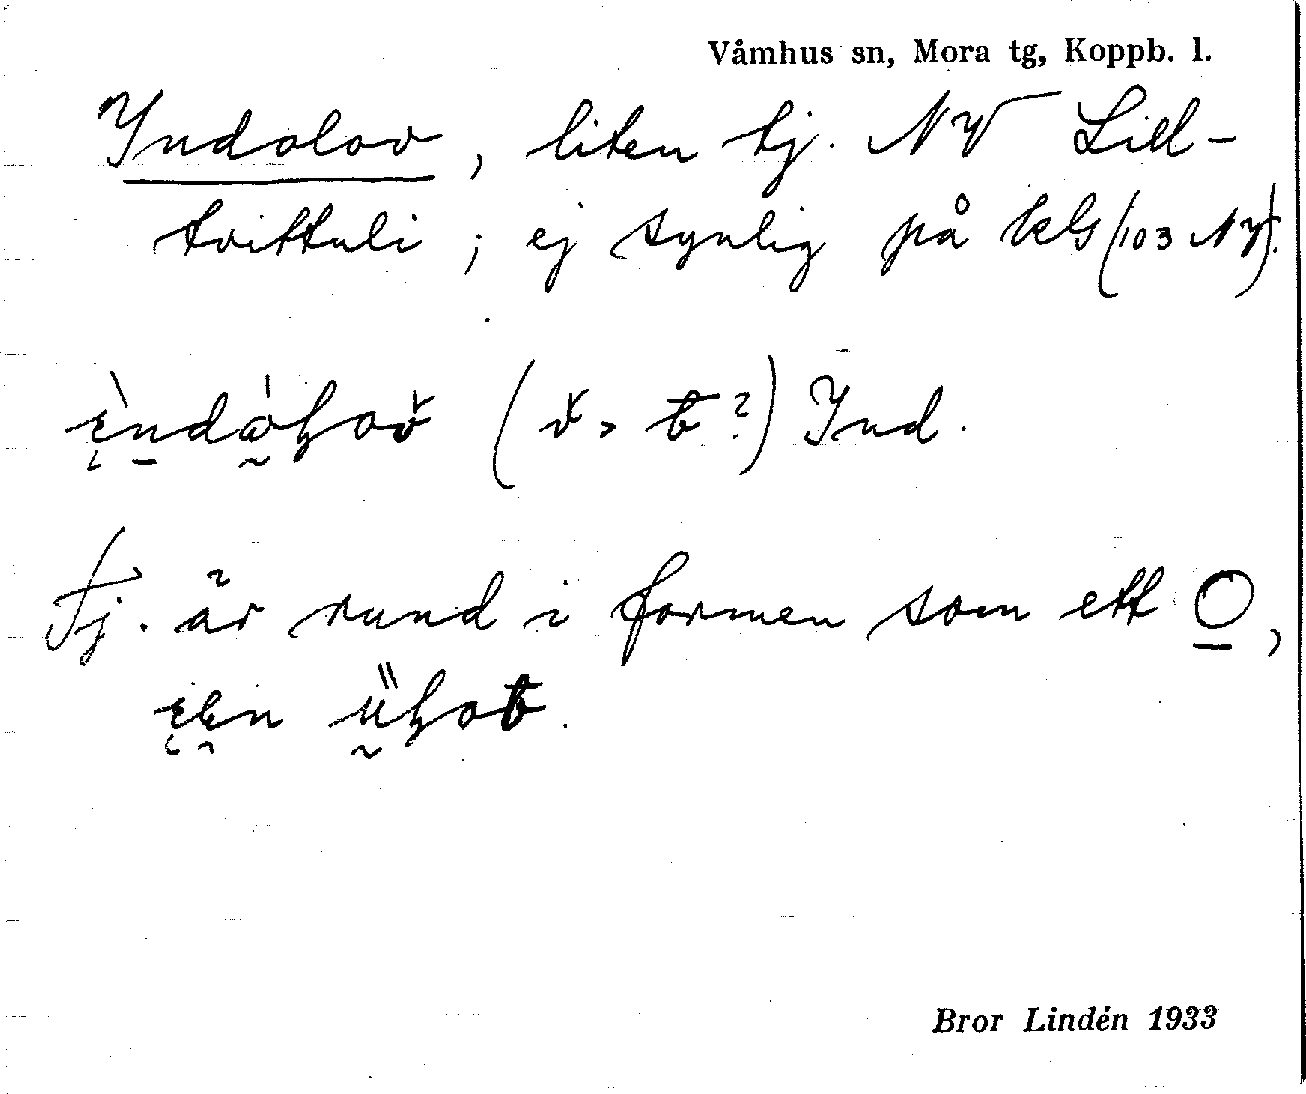 Våmhus sn, Mora tg, Koppb. l.
Yndolov, liten tj. NV Lill-
tvittuli; ej synlig på kbl (103 NV).
(v̆ > ƀ?) Ynd.
Tj. är rund i formen som ett O,
Bror Lindén 1933